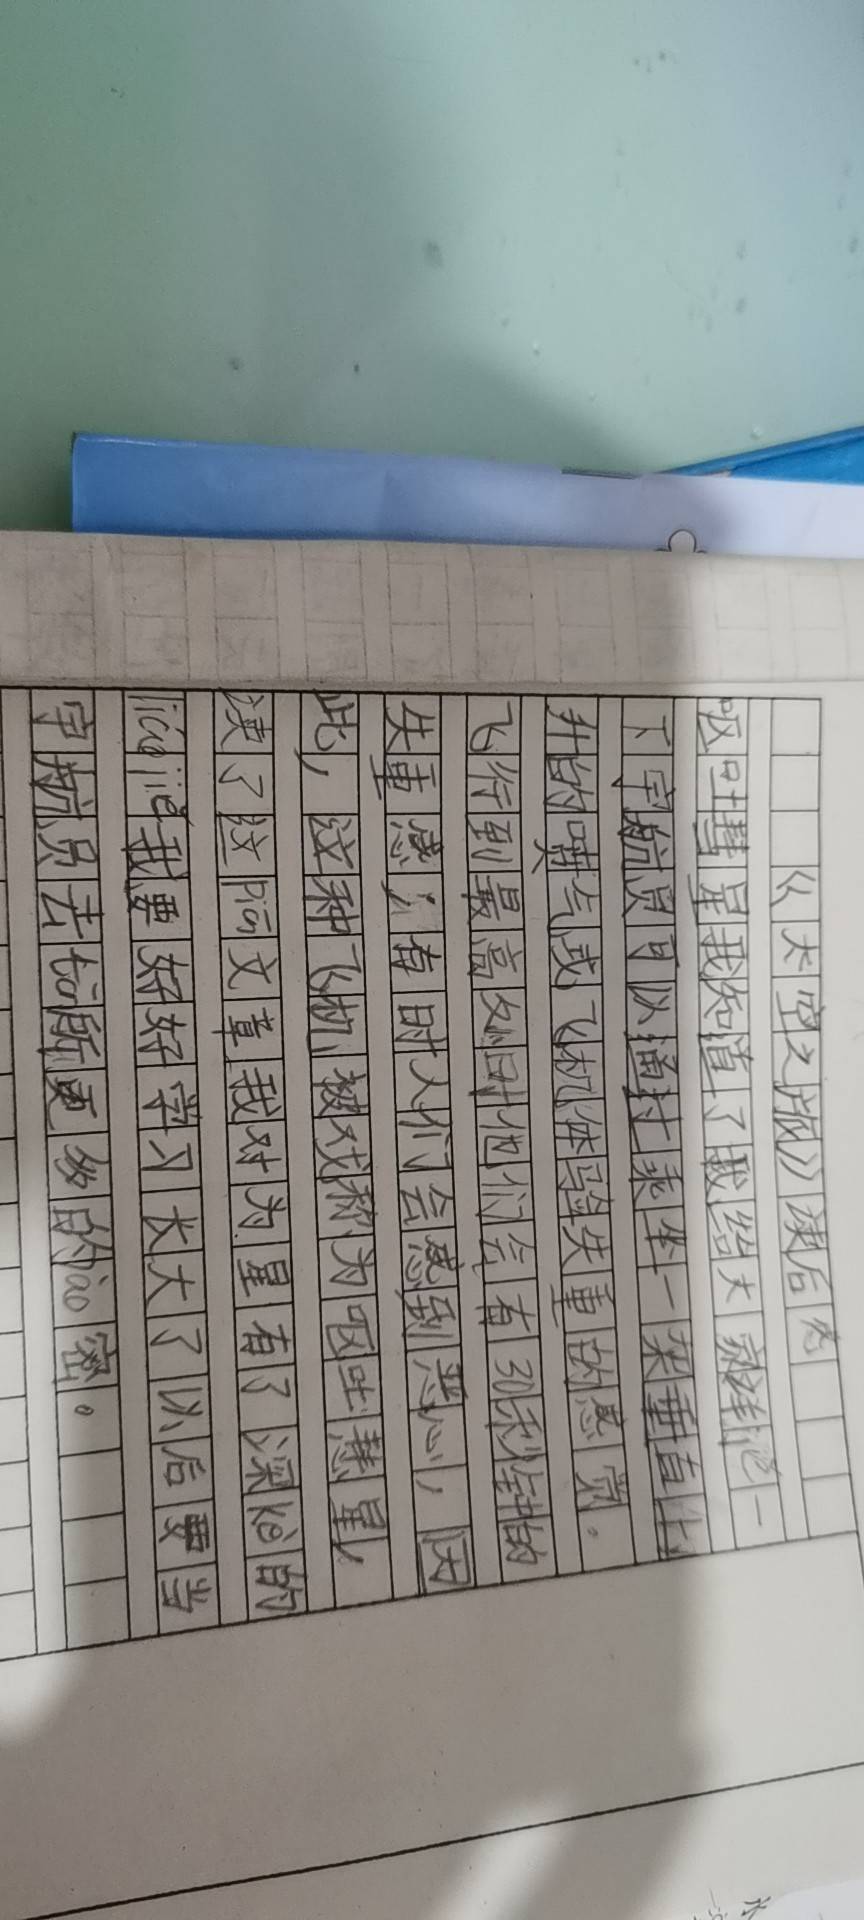 《太空之旅》读后感
呕吐彗星我知道了我给大家详记一
下宇航员可以通过乘坐一架垂直上
升的喷气或飞机体验失重的感觉。
飞行到最高处时他们会有30秒钟的
失重感,有时人们会感到恶心,因
此,这种飞机被戏称为呕吐慧星,
读了这piān文章我对为星有了深kè的
liǎo jiě我要好好学习长大了以后要当
宇航员去tàn所更多的ào密。